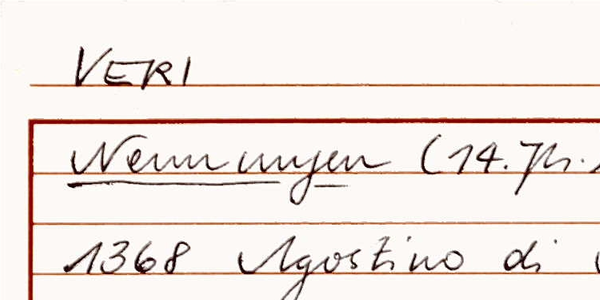 VERI
Nennungen (14. Jh.
1368 Agostino di